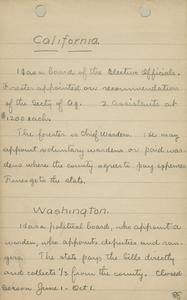 California.
Has a Board of the Elective Officials.
Forester appointed on recommendation
of the Secty of Ag. 2 Assistants at
$1200 each.
The forester is Chief Warden. He may
appoint voluntary wardens or paid war-
dens where the county agrees to pay expenses
Fines go to the state.
Washington.
Has a political board, who appoint a
warden, who appoints deputies and ran-
gers. The state pays the bills directly
and collects 1/3 from the county. Closed
Season June 1 - Oct 1.